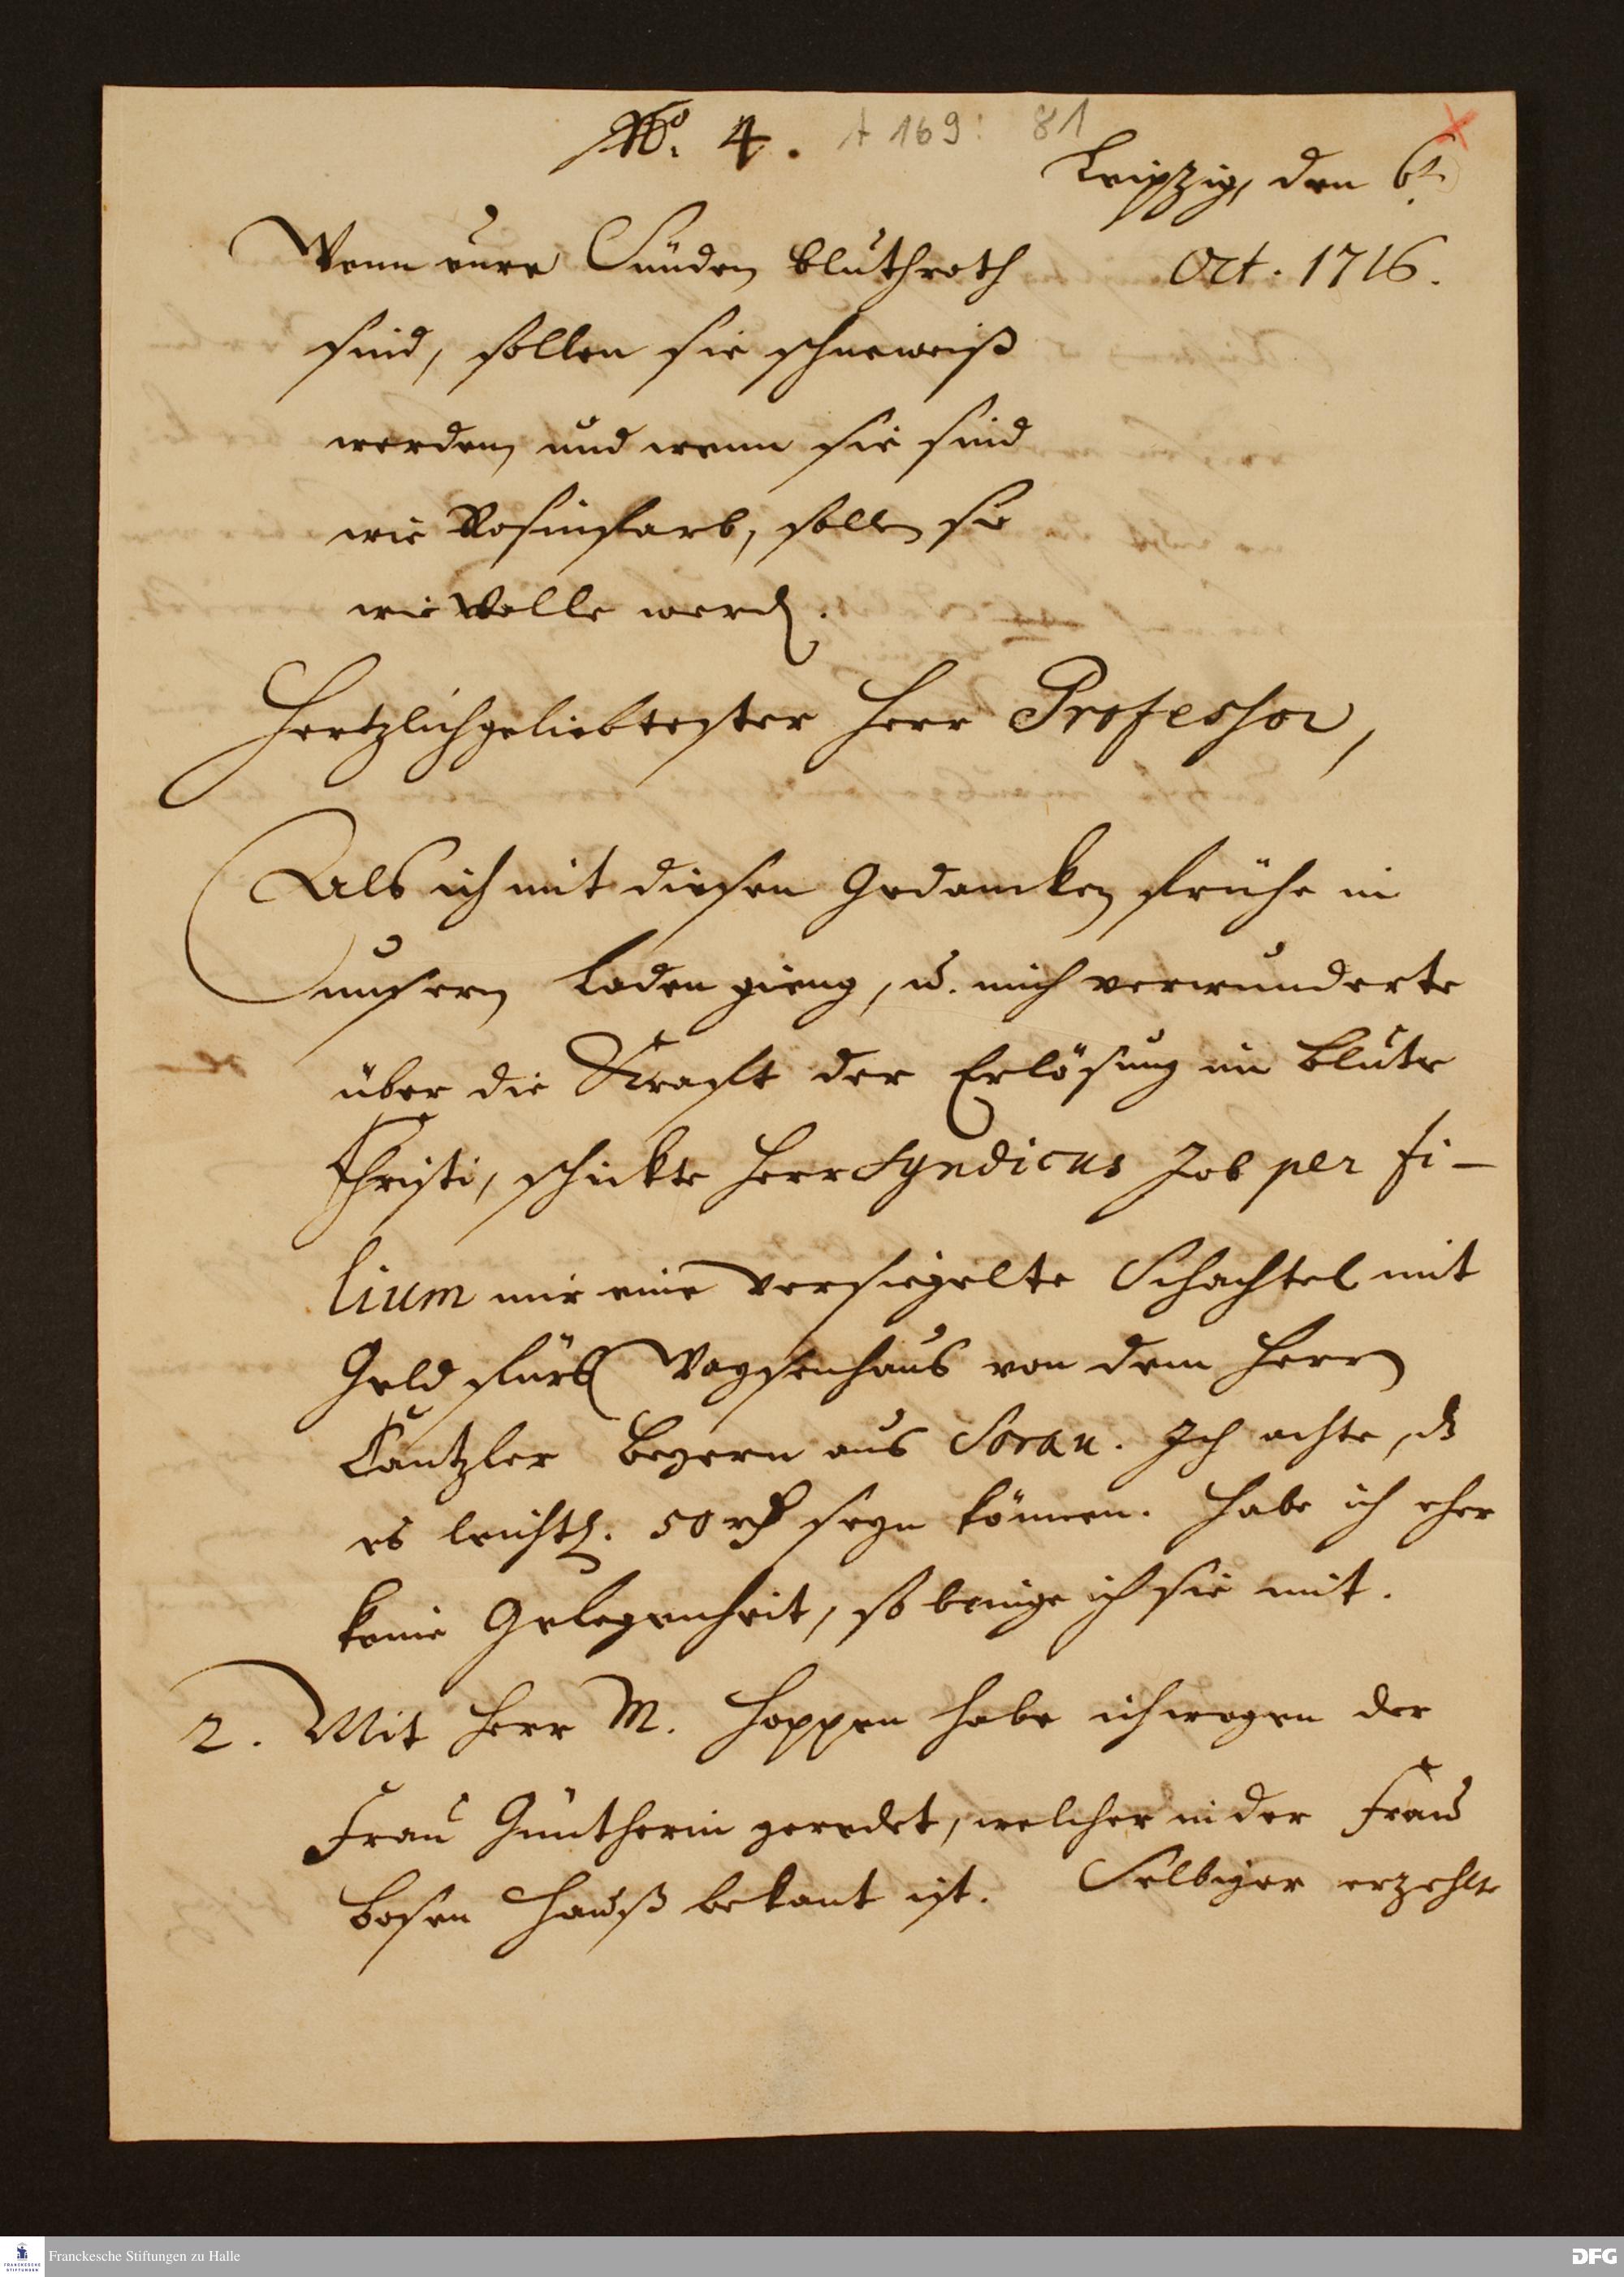 No. 4. A 169: 81
Leipzig, den 6t.
Oct. 1716.
Wenn eure Sünden bluthroth
sind, sollen sie schneeweiß
werden, und wenn sie sind
wie Rosinfarb, sollen sie
wie Wolle werden.
Hertzlichgeliebtester Herr Professor,
Als ich mit diesen Gedancken frühe in
unsern Laden gieng, u. mich verwunderte
über die Krafft der Erlösung im Blute
Christi, schickte Herr Syndicus Job per fi-
lium mir eine versiegelte Schachtel mit
Geld fürs Waysenhaus von dem Herrn
Cantzler Beyern aus Sorau. Ich achte, dz
es leichtl. 50 rth seyn können. Habe ich eher
keine Gelegenheit, so bringe ich sie mit.
2. Mit Herr M. Hoppen habe ich wegen der
Frau Güntherin geredet, welcher in der Frau
Bosen Hauß bekant ist. Selbiger erzehlte
Franckesche Stiftungen zu Halle
FRANCKESCHE STIFTUNGEN
DFG